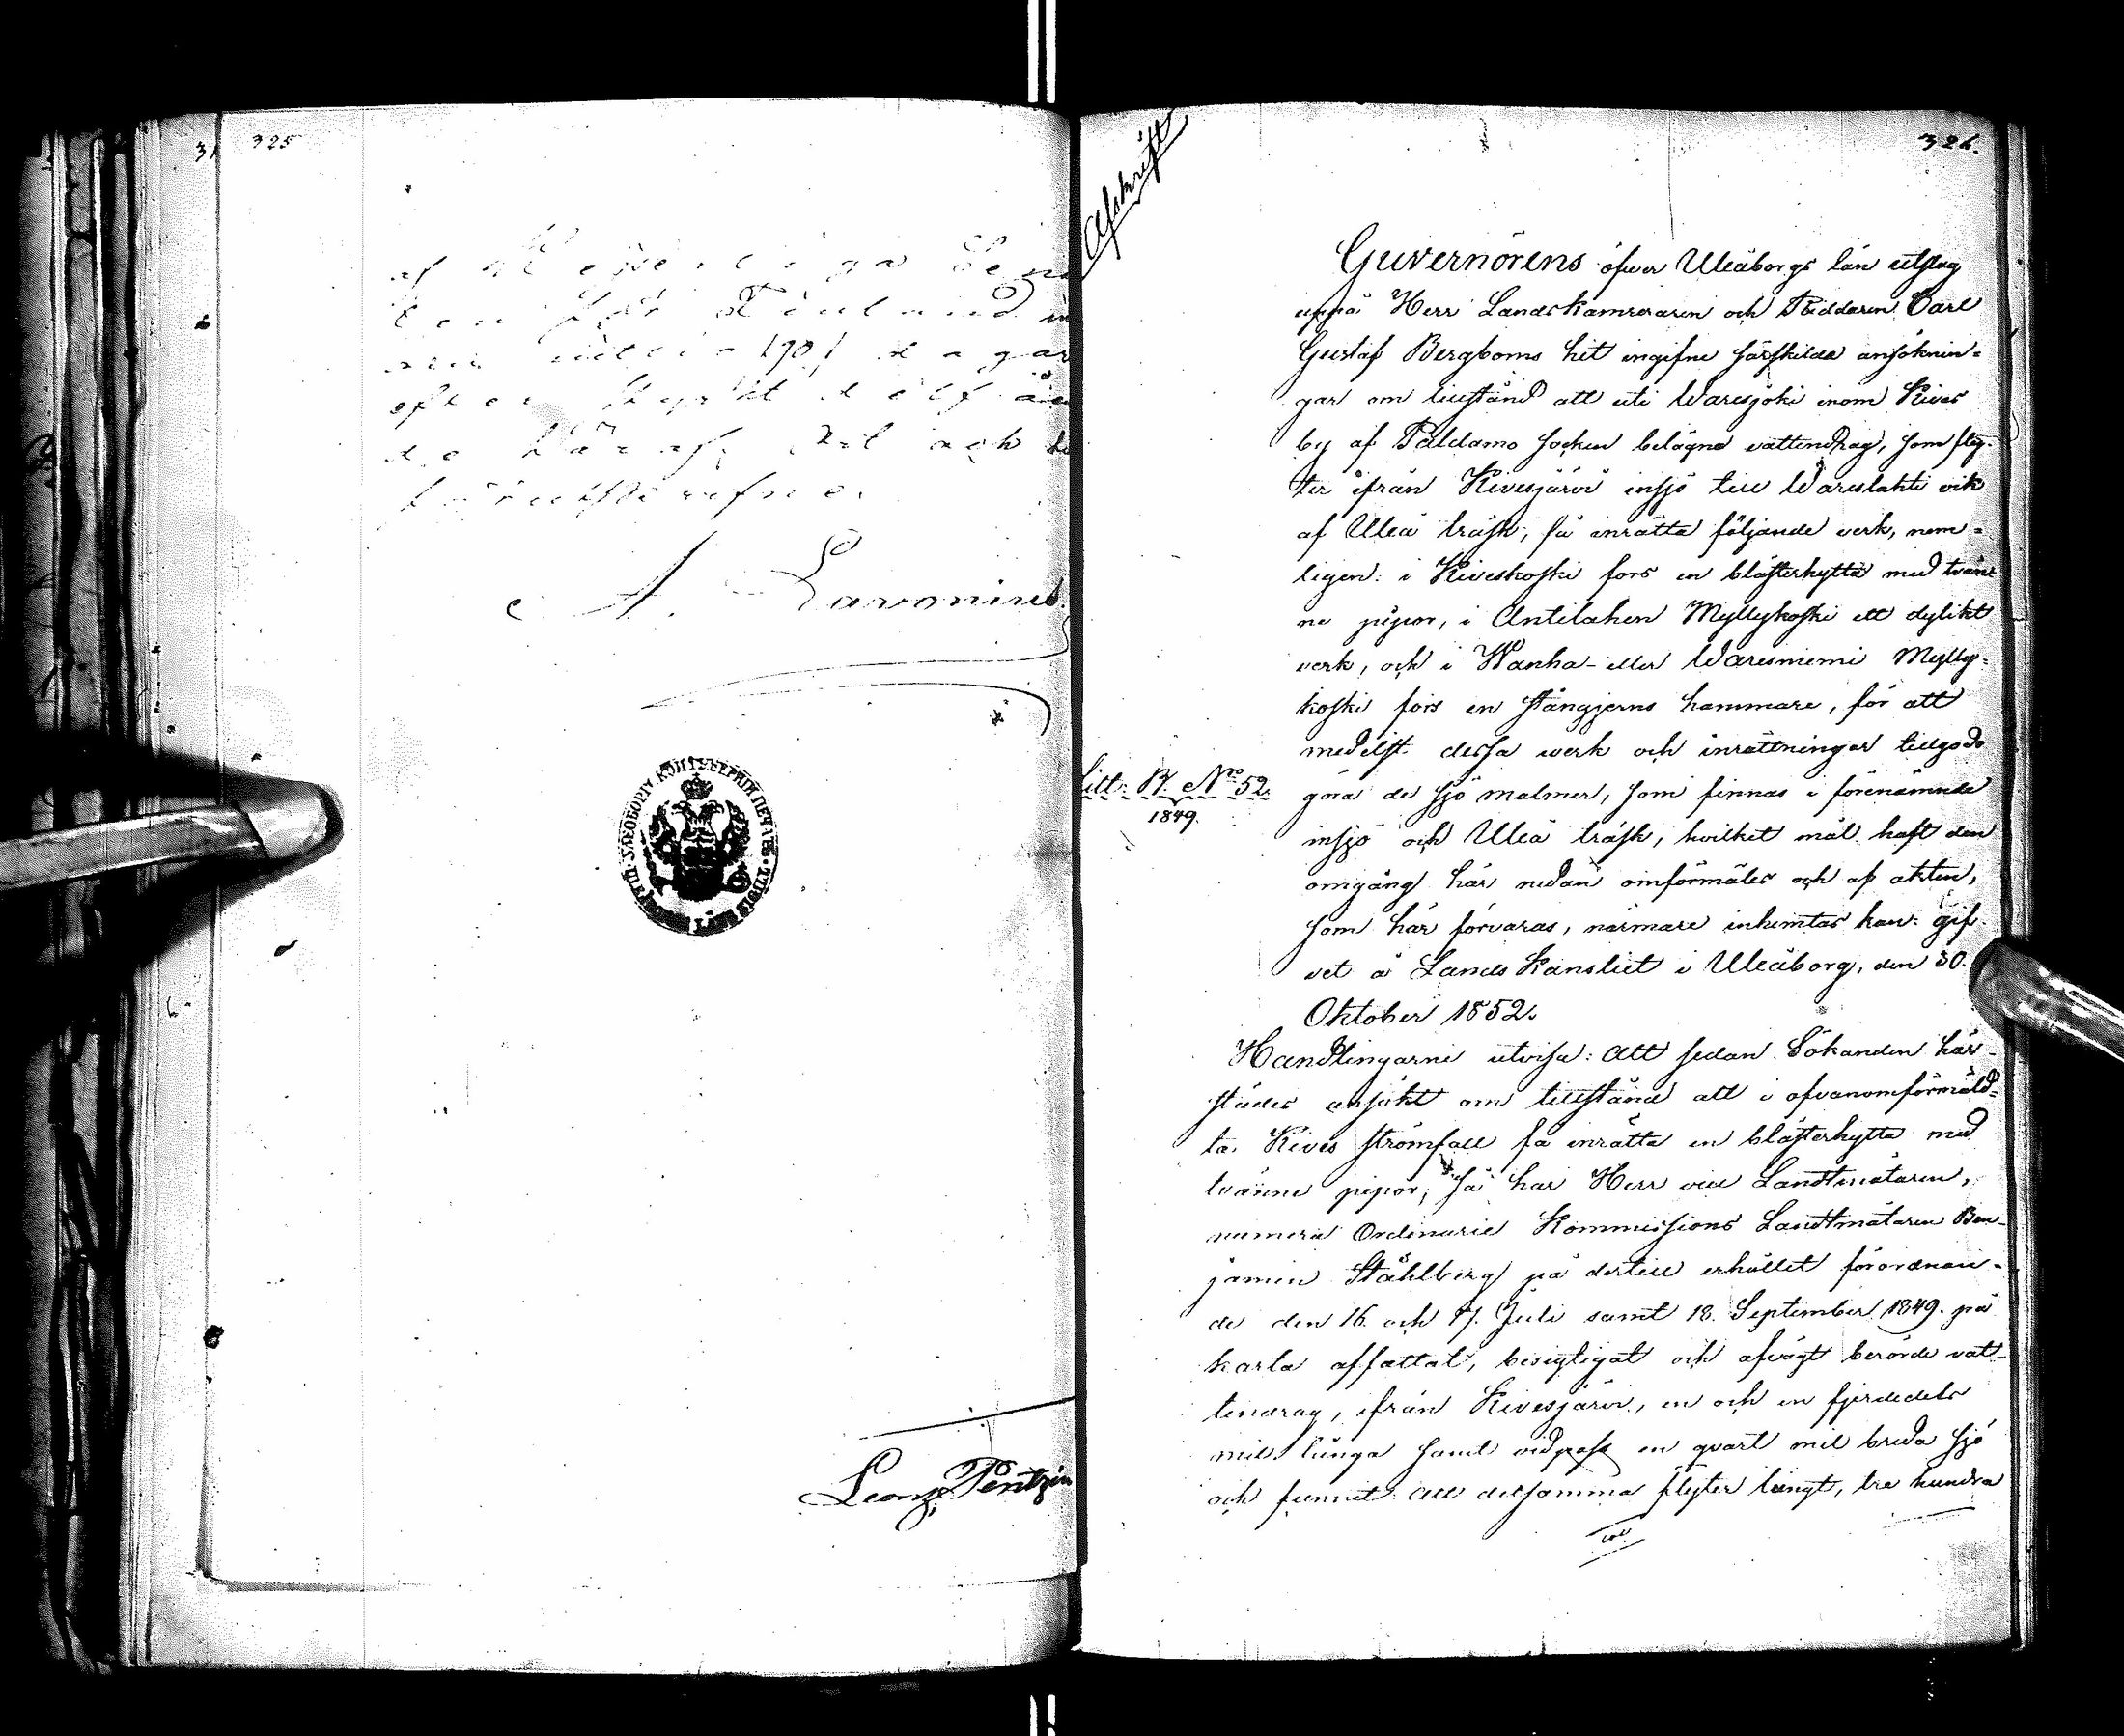 325
af
Sena
1901 dagar
efter
A. Lavonius.
Leonz. Pentzin
326.
Afskrift
Guvernörens öfver Uleåborgs län utslag
uppå Herr Landskamreraren och Riddaren Carl
Gustaf Bergboms hit ingifne särskilda ansöknin-
gar om tillstånd att uti Waresjoki inom Kives
by af Paldamo socken belägna vattendrag, som fly-
ter ifrån Kivesjärvi insjö till Wareslahti vik
af Uleå träsk, få inrätta följande verk, nem-
ligen: i Kiveskoski fors en blästerhytta med tvän-
ne pipor, i Antilahen Myllykoski ett dylikt
verk, och i Wanha- eller Waresniemi Mylly-
koski fors en stångjerns hammare, för att
medelst dessa verk och inrättningar tillgodo
Litt. B. No 52.
1849.
göra de sjö malmer, som finnas i förenämnde
insjö och Uleå träsk, hvilket mål haft den
omgång här nedan omförmäles och af akten,
som här förvaras, närmare inhemtas kan: gif-
vet å Lands Kansliet i Uleåborg, den 30.
Oktober 1852.
Handlingarne utvisa: Att sedan Sökanden här-
städes ansökt om tillstånd att i ofvanomförmäld-
ta Kives strömfall få inrätta en blästerhytta med
tvänne pipor, så har Herr vice Landtmätaren,
numera Ordinarie Kommissions Landtmätaren Ben-
jamin Ståhlberg på dertill erhållet förordnan-
de den 16. och 17. Juli samt 18. September 1849. på
karta affattat, besigtigat och afvägt berörde vat-
tendrag, ifrån Kivesjärvi, en och en fjerdedels
mil långa samt vidpass en qvart mil breda sjö
och funnit: att detsamma flyter längt, tre hundra